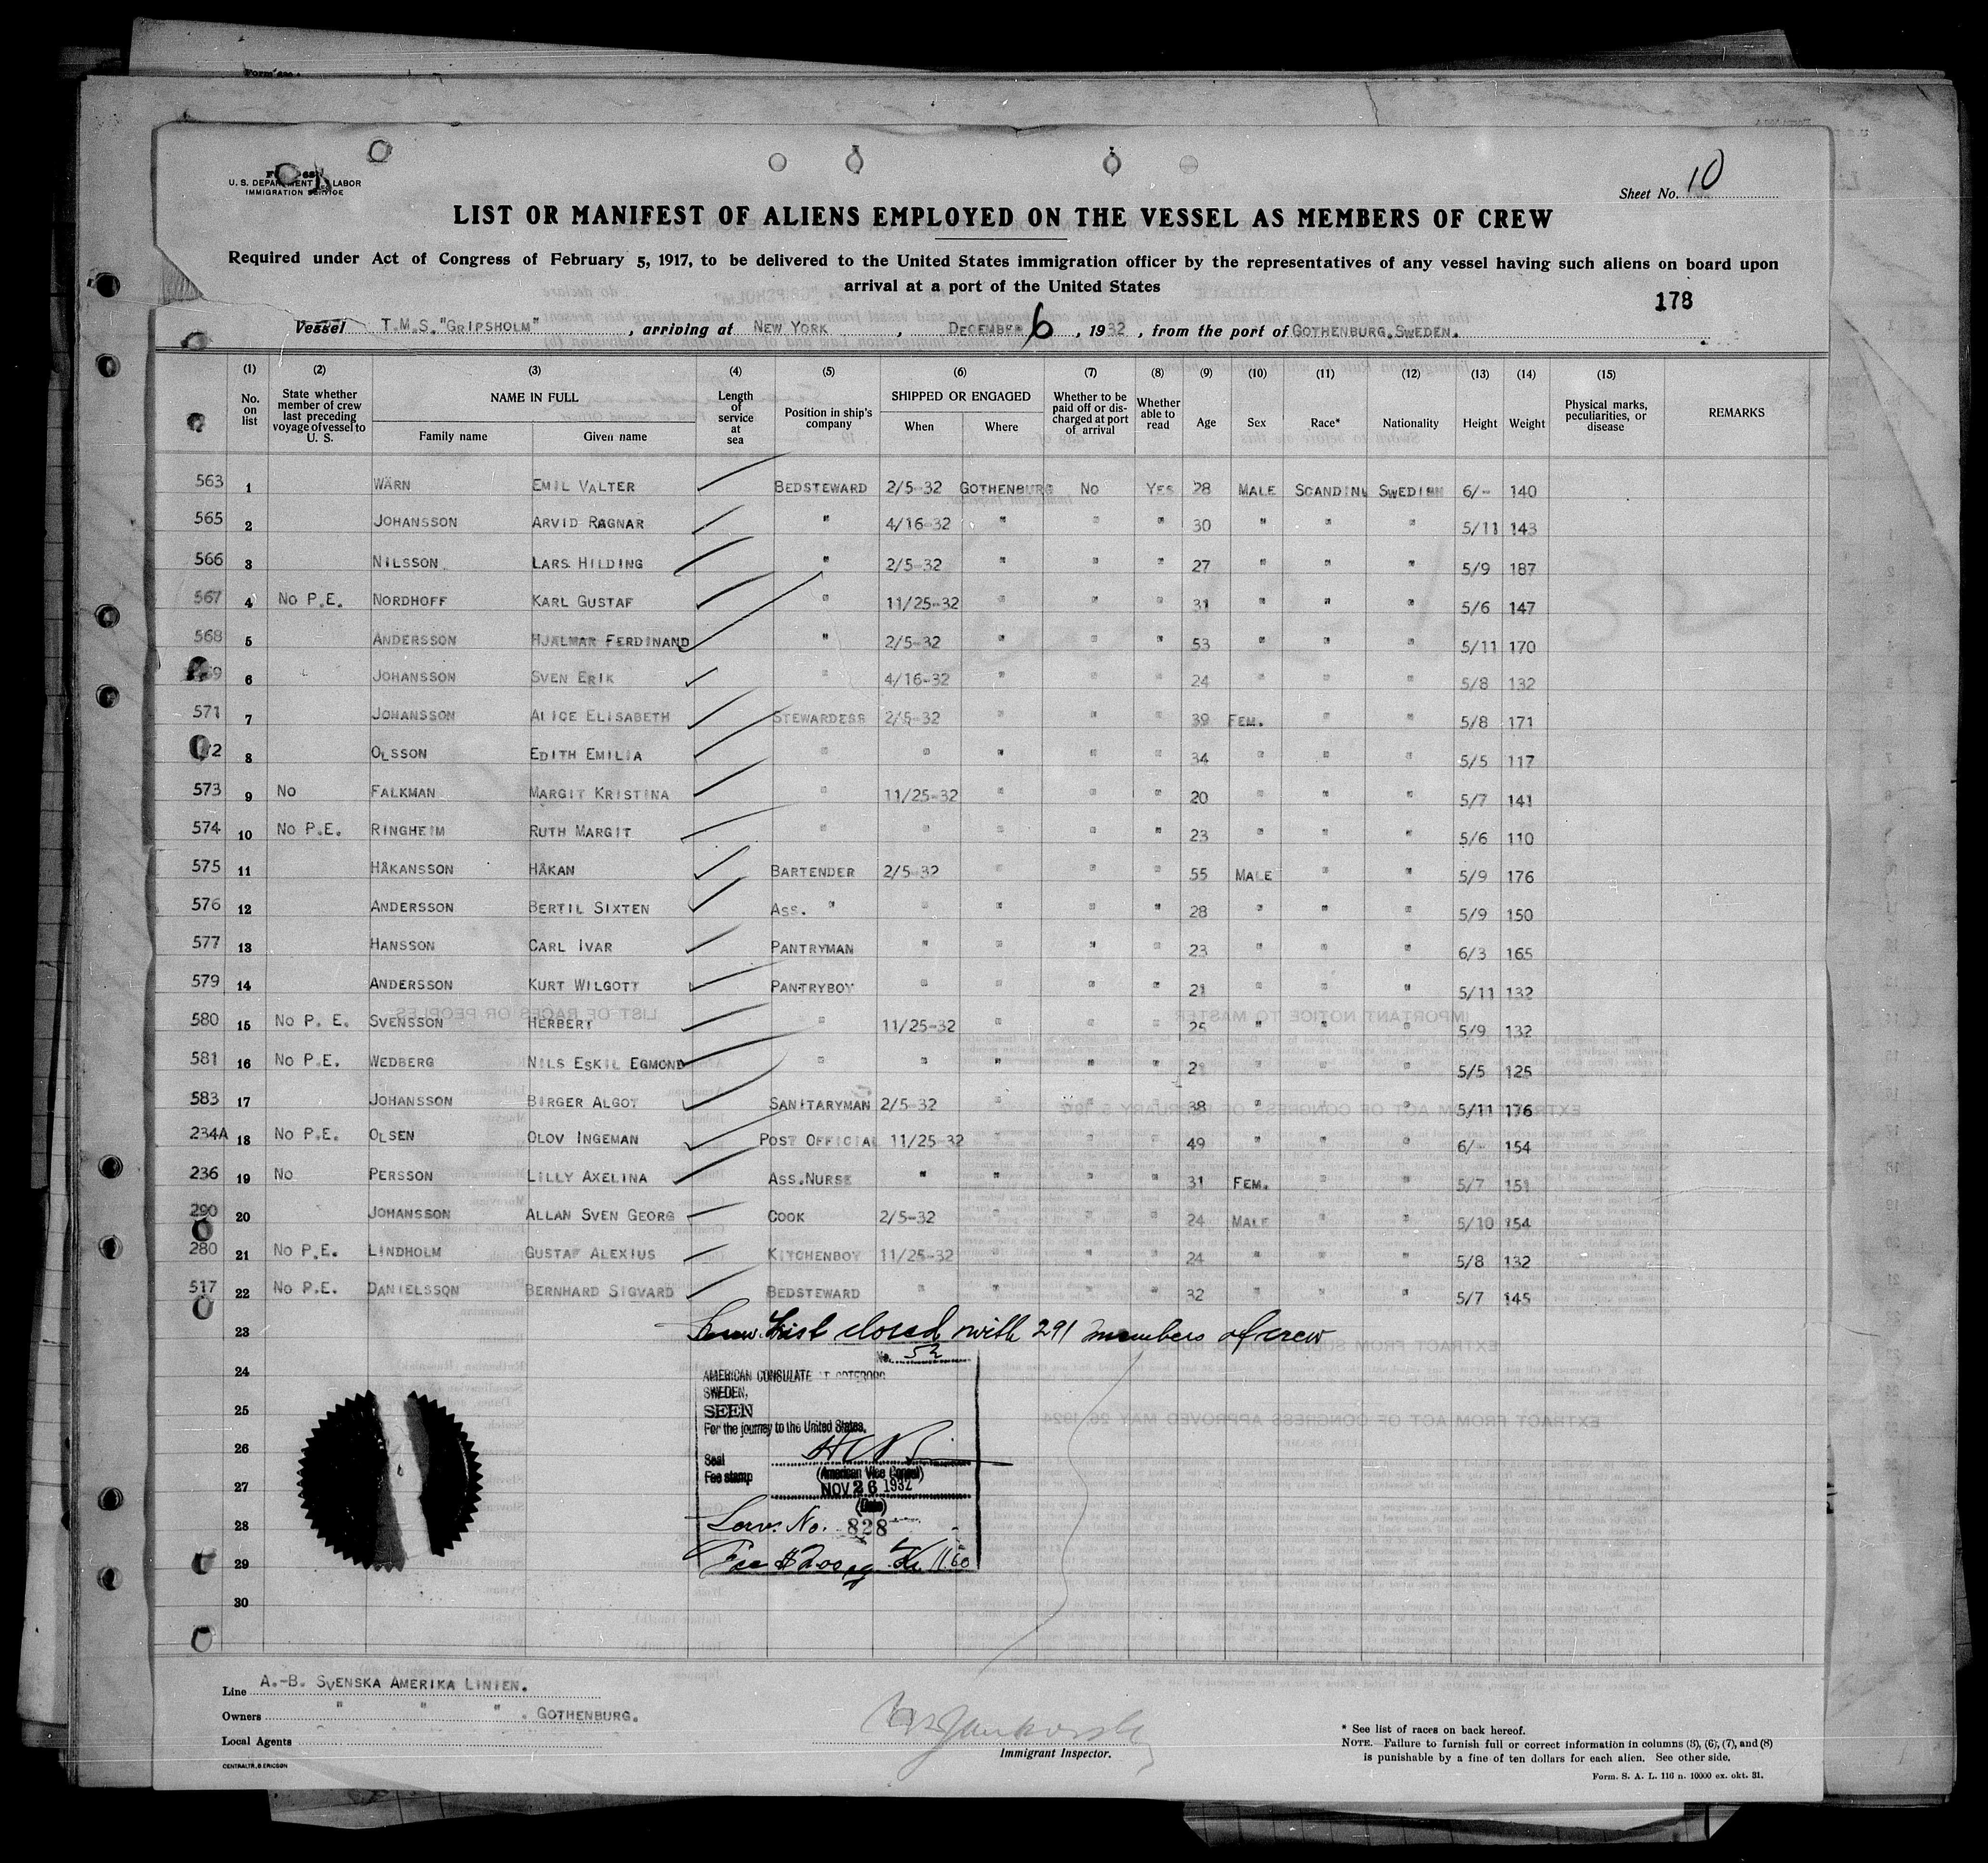 U. S. DEPARTMENT LABOR
IMMIGRATION SERVICE
Sheet No. 10
LIST OR MANIFEST OF ALIENS EMPLOYED ON THE VESSEL AS MEMBERS OF CREW
Required under Act of Congress of February 5, 1917, to be delivered to the United States immigration officer by the representatives of any vessel having such aliens on board upon
arrival at a port of the United States
178
Vessel T.M.S. "GRIPSHOLM", arriving at NEW YORK, DECEMBER 6, 1932, from the port of GOTHENBURG, SWEDEN.
(1) (2) (3) (4) (5) (6) (7) (8) (9) (10) (11) (12) (13) (14) (15)
No. on list State whether member of crew last preceding voyage of vessel to U. S. NAME IN FULL Family name Given name Length of service at sea Position in ship's company SHIPPED OR ENGAGED When Where Whether to be paid off or discharged at port of arrival Whether able to read Age Sex Race* Nationality Height Weight Physical marks, peculiarities, or disease REMARKS
563 1 WÄRN EMIL VALTER BEDSTEWARD 2/5-32 GOTHENBURG NO YES 28 MALE SCANDIN. SWEDISH 6/- 140
565 2 JOHANSSON ARVID RAGNAR " 4/16-32 " " " 30 " " " 5/11 143
566 3 NILSSON LARS HILDING " 2/5-32 " " " 27 " " " 5/9 187
567 4 NO P.E. NORDHOFF KARL GUSTAF " 11/25-32 " " " 31 " " " 5/6 147
568 5 ANDERSSON HJALMAR FERDINAND " 2/5-32 " " " 53 " " " 5/11 170
6 JOHANSSON SVEN ERIK " 4/16-32 " " " 24 " " " 5/8 132
571 7 JOHANSSON ALICE ELISABETH STEWARDESS 2/5-32 " " " 39 FEM. " " 5/8 171
8 OLSSON EDITH EMILIA " " " " " 34 " " " 5/5 117
573 9 NO FALKMAN MARGIT KRISTINA " 11/25-32 " " " 20 " " " 5/7 141
574 10 NO P.E. RINGHEIM RUTH MARGIT " " " " " 23 " " " 5/6 110
575 11 HÅKANSSON HÅKAN BARTENDER 2/5-32 " " " 55 MALE " " 5/9 176
576 12 ANDERSSON BERTIL SIXTEN ASS. " " " " " 28 " " " 5/9 150
577 13 HANSSON CARL IVAR PANTRYMAN " " " " 23 " " " 6/3 165
579 14 ANDERSSON KURT WILGOTT PANTRYBOY " " " " 21 " " " 5/11 132
580 15 NO P. E. SVENSSON HERBERT " 11/25-32 " " " 25 " " " 5/9 132
581 16 NO P.E. WEDBERG NILS ESKIL EGMOND " " " " " 21 " " " 5/5 125
583 17 JOHANSSON BIRGER ALGOT SANITARYMAN 2/5-32 " " " 38 " " " 5/11 176
234A 18 NO P.E. OLSEN OLOV INGEMAN POST OFFICIAL 11/25-32 " " " 49 " " " 6/- 154
236 19 NO PERSSON LILLY AXELINA ASS.NURSE " " " " 31 FEM. " " 5/7 151
290 20 JOHANSSON ALLAN SVEN GEORG COOK 2/5-32 " " " 24 MALE " " 5/10 154
280 21 NO P.E. LINDHOLM GUSTAF ALEXIUS KITCHENBOY 11/25-32 " " " 24 " " " 5/8 132
517 22 NO P.E. DANIELSSON BERNHARD SIGVARD BEDSTEWARD " " " " 32 " " " 5/7 145
23 Crew List closed with 291 members of crew
No. 52
24 AMERICAN CONSULATE AT GOTEBORG
SWEDEN,
25 SEEN
For the journey to the United States,
26
Seal
Fee stamp (American Vice Consul)
27 NOV 26 1932
(Date)
28 Serv. No. 828
29 Fee $2.00 eq. Kr. 11.60
30
Line A.-B. SVENSKA AMERIKA LINIEN.
Owners " " ". GOTHENBURG.
Local Agents
CENTRALTR, B. ERICSON
Immigrant Inspector.
* See list of races on back hereof.
NOTE. Failure to furnish full or correct information in columns (3), (6), (7), and (8)
is punishable by a fine of ten dollars for each alien. See other side.
Form. S. A. L. 116 n. 10000 ex. okt. 31.